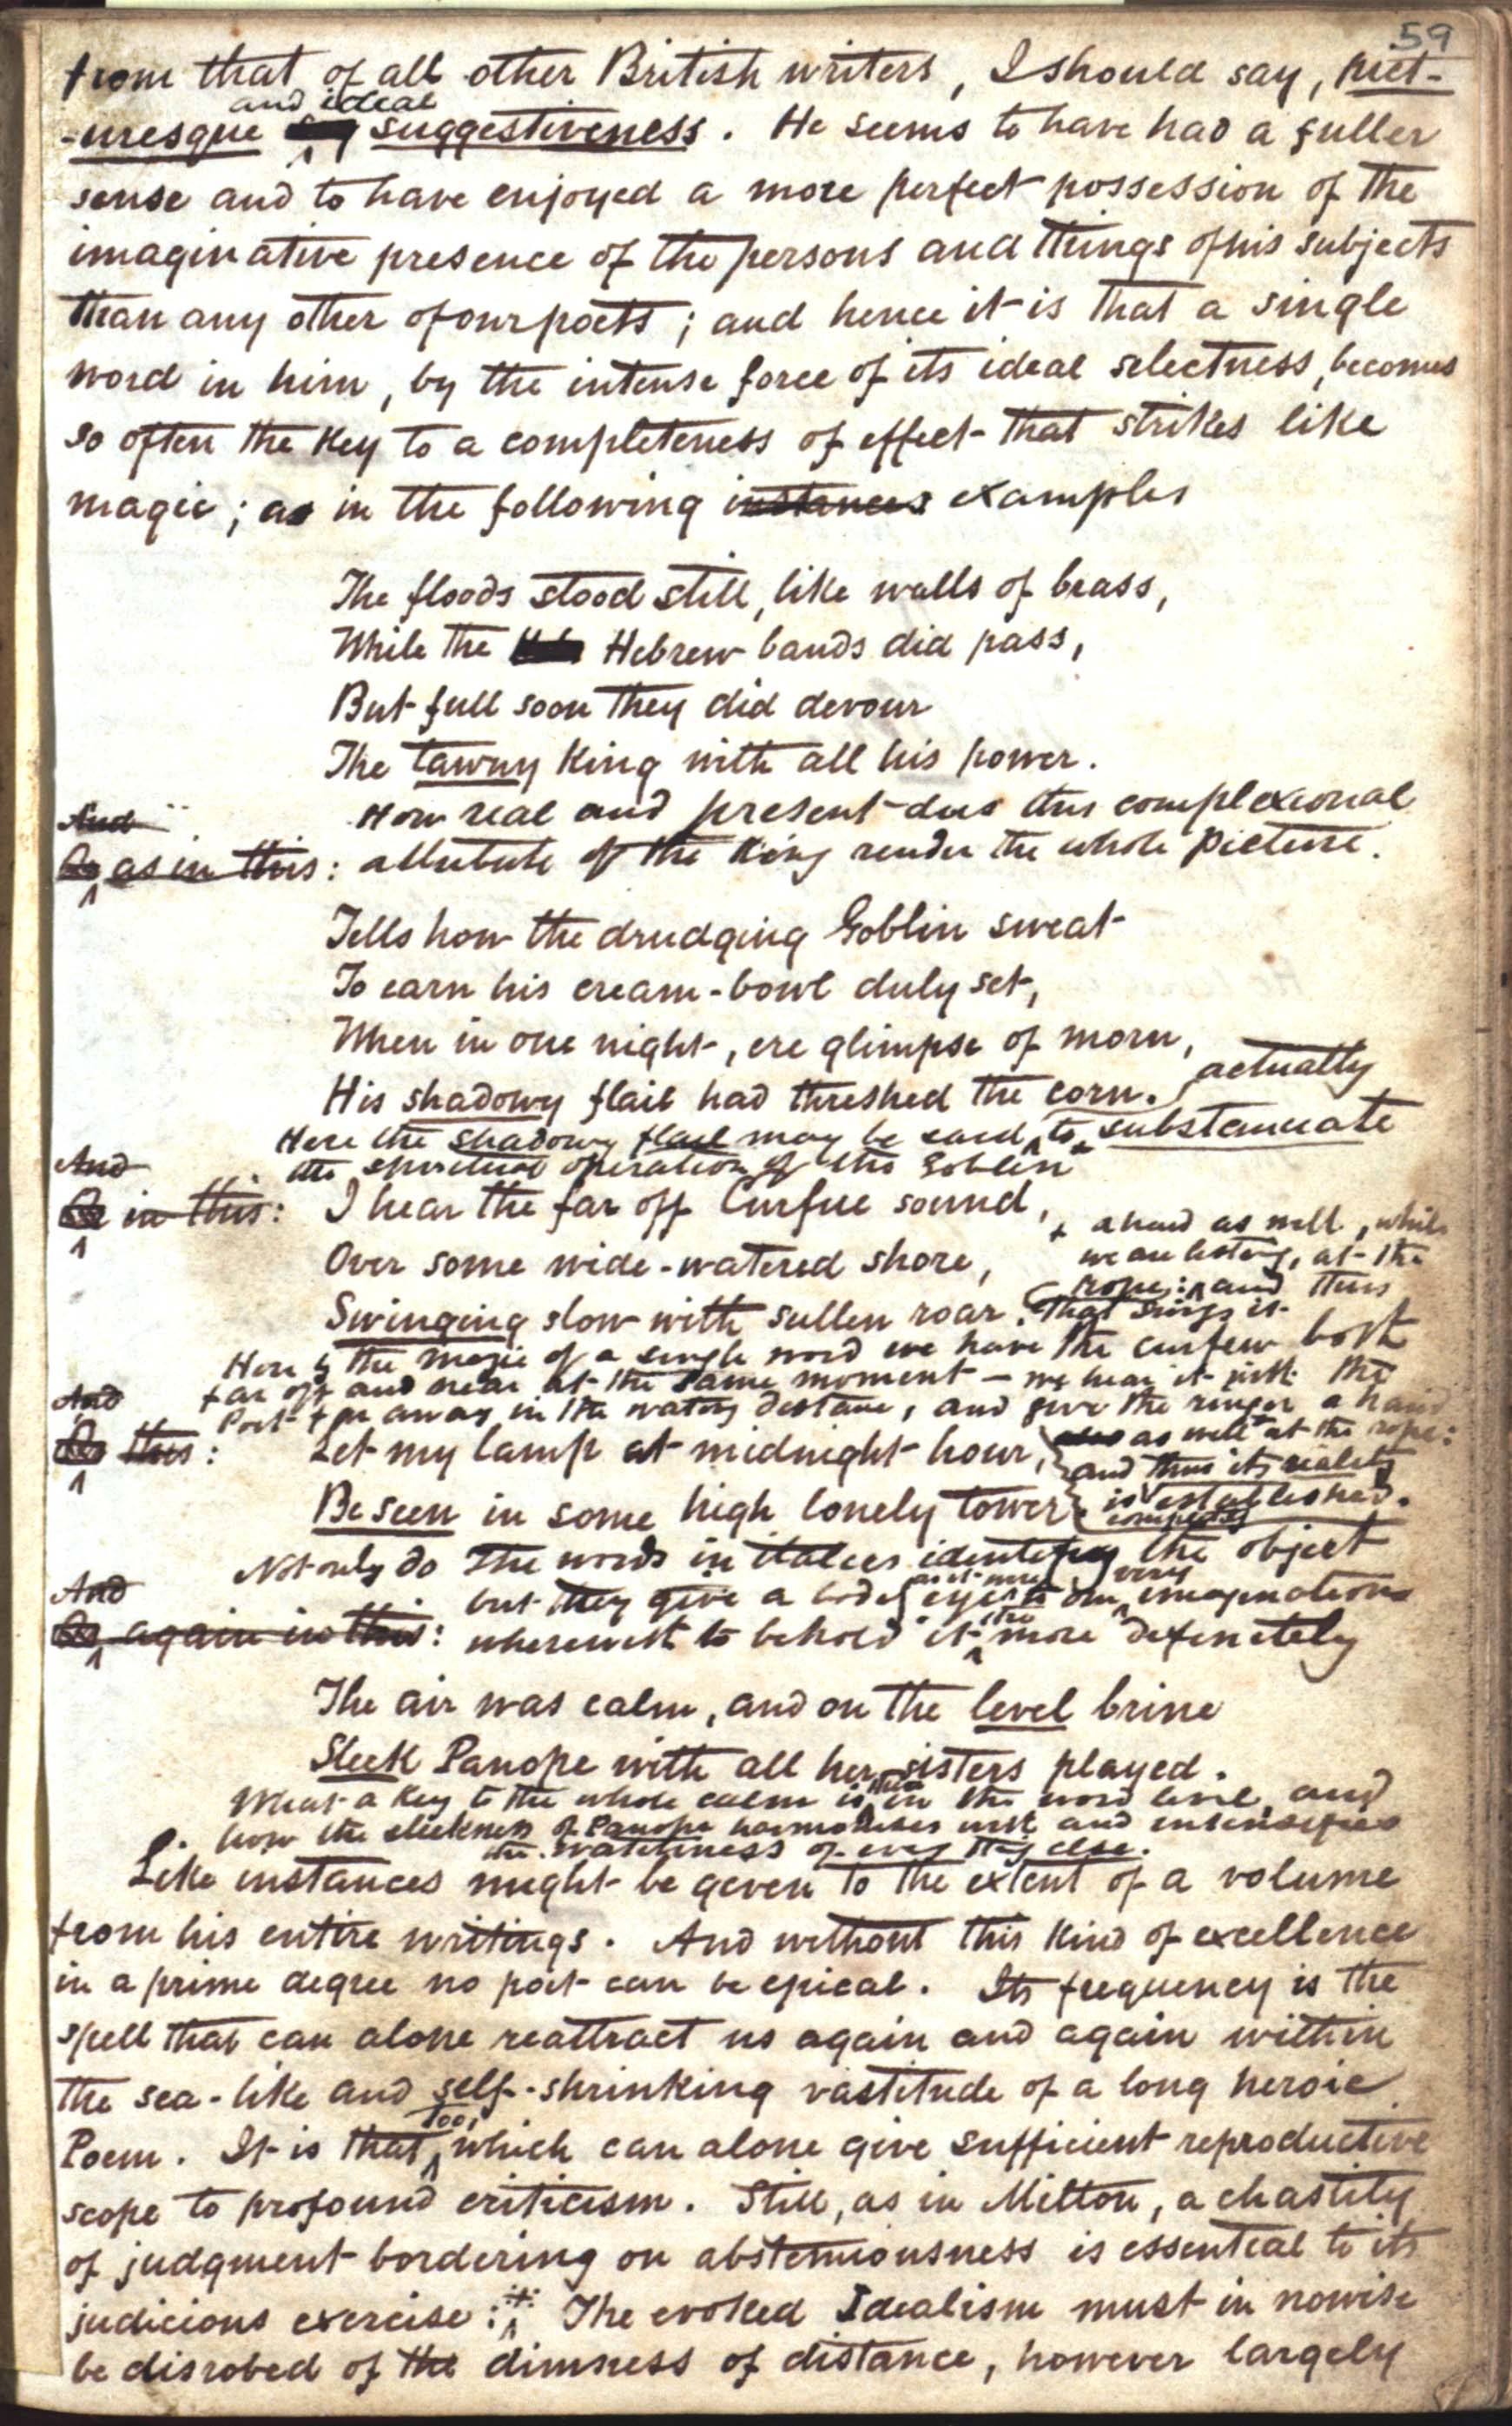 59
from that of all other British writers, I should say, pict-
and ideal
-uresque suggestiveness. He seems to have had a fuller
sense and to have enjoyed a more perfect possession of the
imaginative presence of the persons and things of his subjects
than any other of our poets; and hence it is that a single
word in him, by the intense force of its ideal selectness, becomes
so often the key to a completeness of effect that strikes like
magic; as in the following instances examples
The floods stood still, like walls of brass,
While the Hebrew bands did pass,
But full soon they did devour
The tawny King with all his power.
And How real and present does this complexional
as in this: attribute of the King render the whole picture.
Tells how the drudging Goblin sweat
To earn his cream-bowl duly set,
When in one night, ere glimpse of morn,
His shadowy flail had threshed the corn. actually
Here the shadowy flail may be said to substantiate
And the spiritual operation of the Goblin
in this: I hear the far off Curfue sound,
+ a hand as well, while
Over some wide-watered shore,
we are listening, at the
rope: and thus
Swinging slow with sullen roar. that swings it
Here by the magic of a single word we have the curfew both
far off and near at the same moment – we hear it with the
And Poet far away in the watery distance, and give the ringer a hand
this: Let my lamp at midnight hour, as well at the rope:
and thus its reality
Be seen in some high lonely tower is established.
completely
Not only do the words in italics identify the object
And but they give a bodily eye as it were to our very imaginations
again in this: wherewith to behold it the more definitely
The air was calm, and on the level brine
Sleek Panope with all her sisters played.
What a key to the whole calm is there in the word level, and
how the sleekness of Panope harmonises with and intensifies
the wateriness of every thing else.
Like instances might be given to the extent of a volume
from his entire writings. And without this kind of excellence
in a prime degree no poet can be epical. Its frequency is the
spell that can alone reattract us again and again within
the sea-like and self-shrinking vastitude of a long heroic
too,
Poem. It is that which can alone give sufficient reproductive
scope to profound criticism. Still, as in Milton, a chastity
of judgment bordering on abstemiousness is essential to its
judicious exercise: The evoked Idealism must in nowise
be disrobed of the dimness of distance, however largely